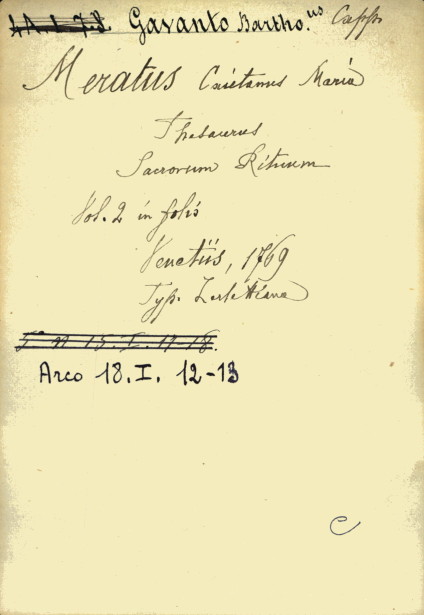 Gavanto Bartho.us Capp.
Meratus Caietanus Maria
Thesaurus
Sacrorum Rituum
Vol. 2 in folio
Venetiis, 1769
Typ.
Arco 18. I. 12-13
C